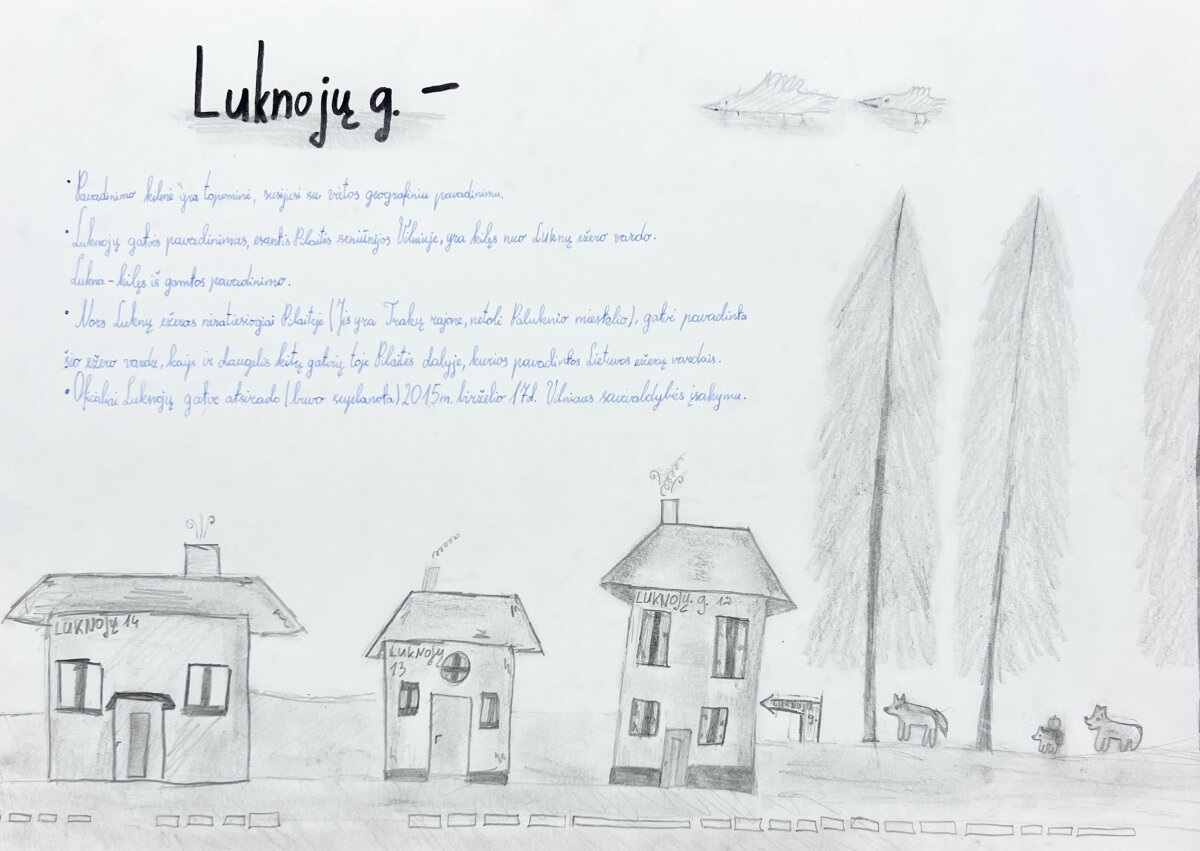 Luknojų g. –
• Pavadinimo kilmė yra toponiminė, susijusi su vietos geografiniu pavadinimu.
• Luknojų gatvės pavadinimas, esantis Pilaitės seniūnijos Vilniuje, yra kilęs nuo Luknų ežero vardo.
Lukna - kilęs iš gamtos pavadinimo.
• Nors Luknų ežeras nėra tiesiogiai Pilaitėje (Jis yra Trakų rajone, netoli Paluknio miestelio), gatvė pavadinta
šio ežero vardu, kaip ir daugelis kitų gatvių toje Pilaitės dalyje, kurios pavadintos Lietuvos ežerų vardais.
• Oficialiai Luknojų gatvė atsirado (buvo suplanuota) 2015m. birželio 17d. Vilniaus savivaldybės įsakymu.
LUKNOJŲ 14
LUKNOJŲ
13
LUKNOJŲ g. 12
Luknojų
g.